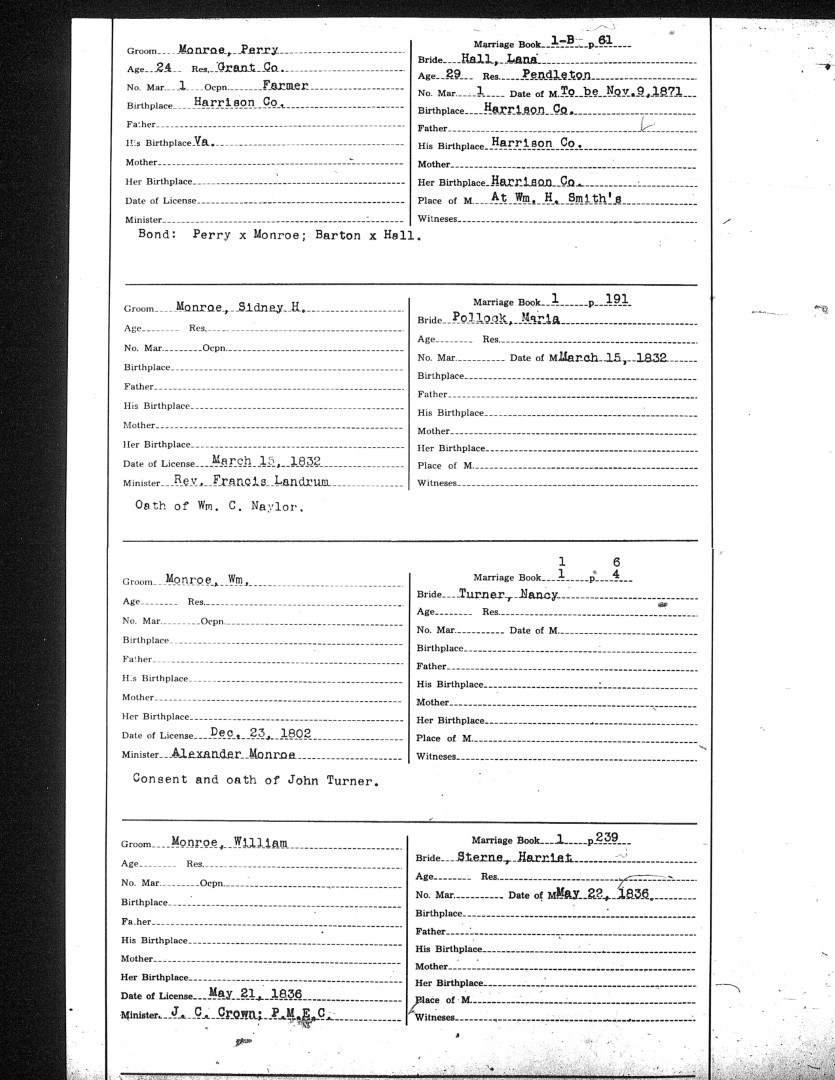 Groom Monroe, Perry
Age 24 Res. Grant Co.
No. Mar. 1 Ocpn. Farmer
Birthplace Harrison Co.
Father
His Birthplace Va.
Mother
Her Birthplace
Date of License
Minister
Marriage Book 1-B p. 61
Bride Hall, Lana
Age 29 Res. Pendleton
No. Mar. 1 Date of M. To be Nov.9,1871
Birthplace Harrison Co.
Father
His Birthplace Harrison Co.
Mother
Her Birthplace Harrison Co.
Place of M. At Wm. H. Smith's
Witneses
Bond: Perry x Monroe; Barton x Hall.
Groom Monroe, Sidney H.
Age Res.
No. Mar. Ocpn.
Birthplace
Father
His Birthplace
Mother
Her Birthplace
Date of License March 15, 1832
Minister Rev. Francis Landrum
Marriage Book 1 p. 191
Bride Pollock, Maria
Age Res.
No. Mar. Date of M. March 15, 1832
Birthplace
Father
His Birthplace
Mother
Her Birthplace
Place of M.
Witneses
Oath of Wm. C. Naylor.
Groom Monroe, Wm.
Age Res.
No. Mar. Ocpn.
Birthplace
Father
His Birthplace
Mother
Her Birthplace
Date of License Dec. 23, 1802
Minister Alexander Monroe
1 6
Marriage Book 1 p. 4
Bride Turner, Nancy
Age Res.
No. Mar. Date of M.
Birthplace
Father
His Birthplace
Mother
Her Birthplace
Place of M.
Witneses
Consent and oath of John Turner.
Groom Monroe, William
Age Res.
No. Mar. Ocpn.
Birthplace
Father
His Birthplace
Mother
Her Birthplace
Date of License May 21, 1836
Minister. J. C. Crown; P.M.E.C.
Marriage Book 1 p. 239
Bride Sterne, Harriet
Age Res.
No. Mar. Date of M. May 22, 1836.
Birthplace
Father
His Birthplace
Mother
Her Birthplace
Place of M.
Witneses